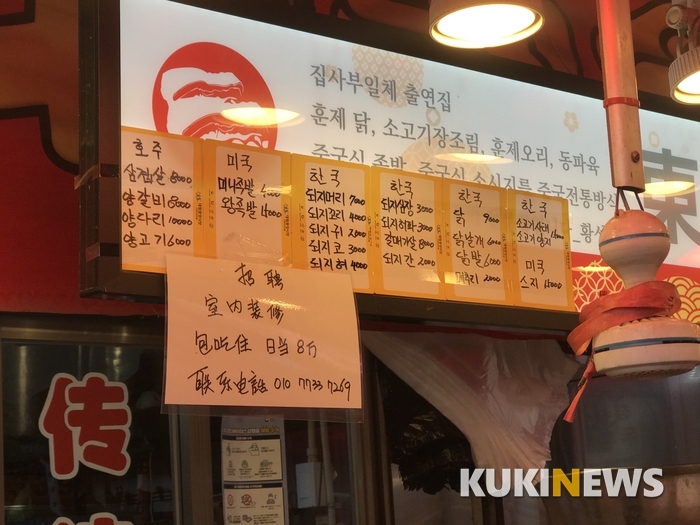 집사부일체 출연집
훈제 닭, 소고기장조림, 훈제오리, 동파육
중국식 족발, 중국식 소시지를 중국전통방식
東
호주
삼겹살 8000
양갈비 5000
양다리 10000
양고기 6000
미국
미니족발
왕족발
한국
돼지머리 7000
돼지꼬리 4000
돼지귀 2000
돼지코 3000
돼지혀 4000
한국
돼지심장 3000
돼지허파 3000
갈매기살 8000
돼지간 2000
한국
닭 9000
닭날개 6000
닭발 6000
메추리 2000
한국
소고기사태
소고기양지
미국
스지 15000
招聘
室内装修
包吃住 日当 8万
联系电话 010 7733 7269
传
KUKINEWS